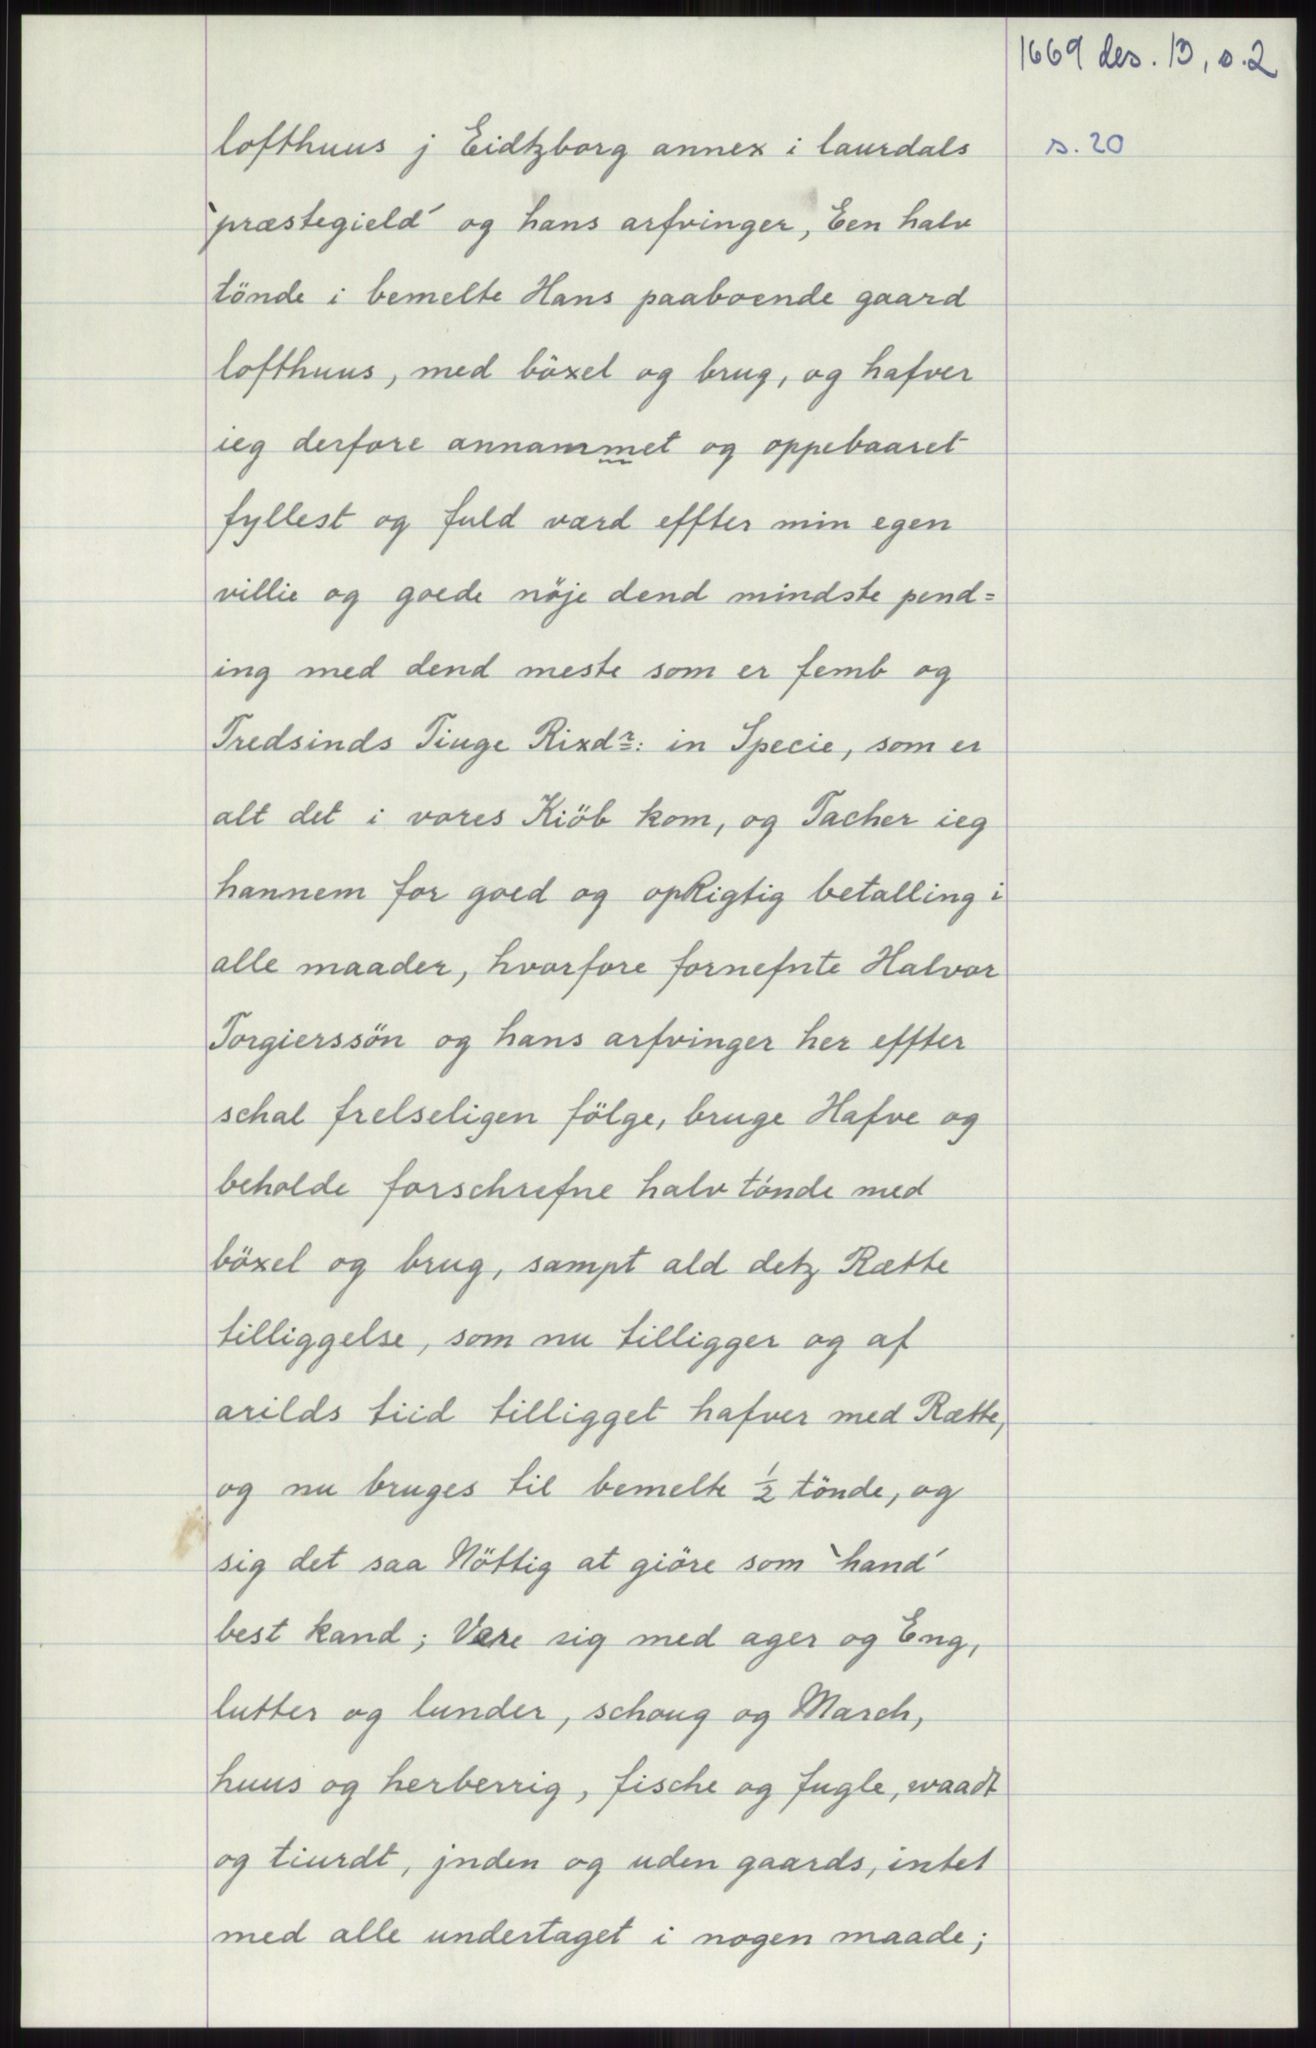 1669 des. 13, s. 2
s. 20
lofthuus j Eidtzborg annex i laurdals
`præstegield´ og hans arfvinger, Een halv
tönde i bemelte Hans paaboende gaard
lofthuus, med böxel og brug, og hafver
ieg derfore annammet og oppebaaret
fyllest og fuld værd effter min egen
villie og goede nöje dend mindste pend=
ing med dend meste som er femb og
Tredsinds Tiuge Rixdr: in Specie, som er
alt det i vores Kiöb kom, og Tacher ieg
hannem for goed og opRigtig betalling i
alle maader, hvorfore fornefnte Halvor
Torgierssön og hans arfvinger her effter
schal frelseligen fölge, bruge Hafve og
beholde forschrefne halv tönde med
böxel og brug, sampt ald detz Rætte
tilliggelse, som nu tilligger og af
arilds tiid tilligget hafver med Rætte,
og nu bruges til bemelte ½ tönde, og
sig det saa Nöttig at giöre som `hand´
best kand; Være sig med ager og Eng,
lutter og lunder, schoug og March,
huus og herberrig, fische og fugle, waadt
og tiurdt, jnden og uden gaards, intet
med alle undertaget i nogen maade;